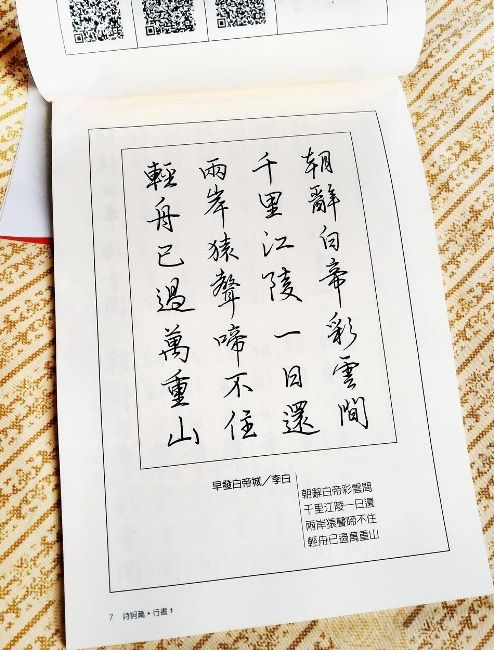 朝辭白帝彩雲間
千里江陵一日還
兩岸猿聲啼不住
輕舟已過萬重山
早發白帝城／李白
朝辭白帝彩雲間
千里江陵一日還
兩岸猿聲啼不住
輕舟已過萬重山
7 詩詞篇・行書 1